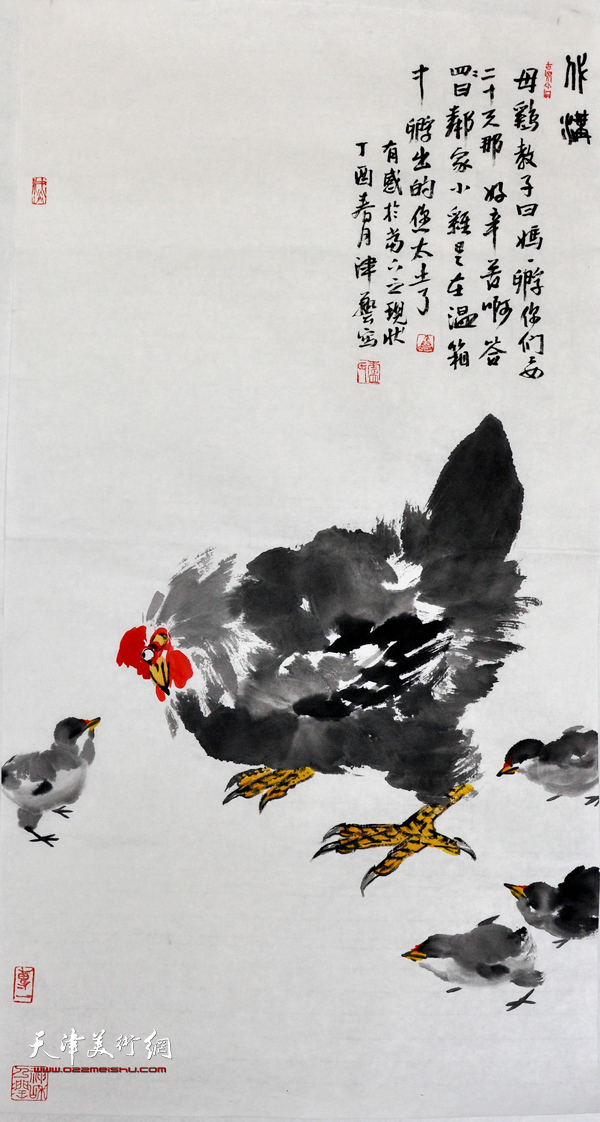 代沟
母鷄教子曰媽〻孵你们要
二十天那好辛苦啊答
四曰鄰家小雞是在温箱
中孵出的您太土了
有感於當下之現状
丁酉春月津藝寫
天津美術網
www.022meishu.com